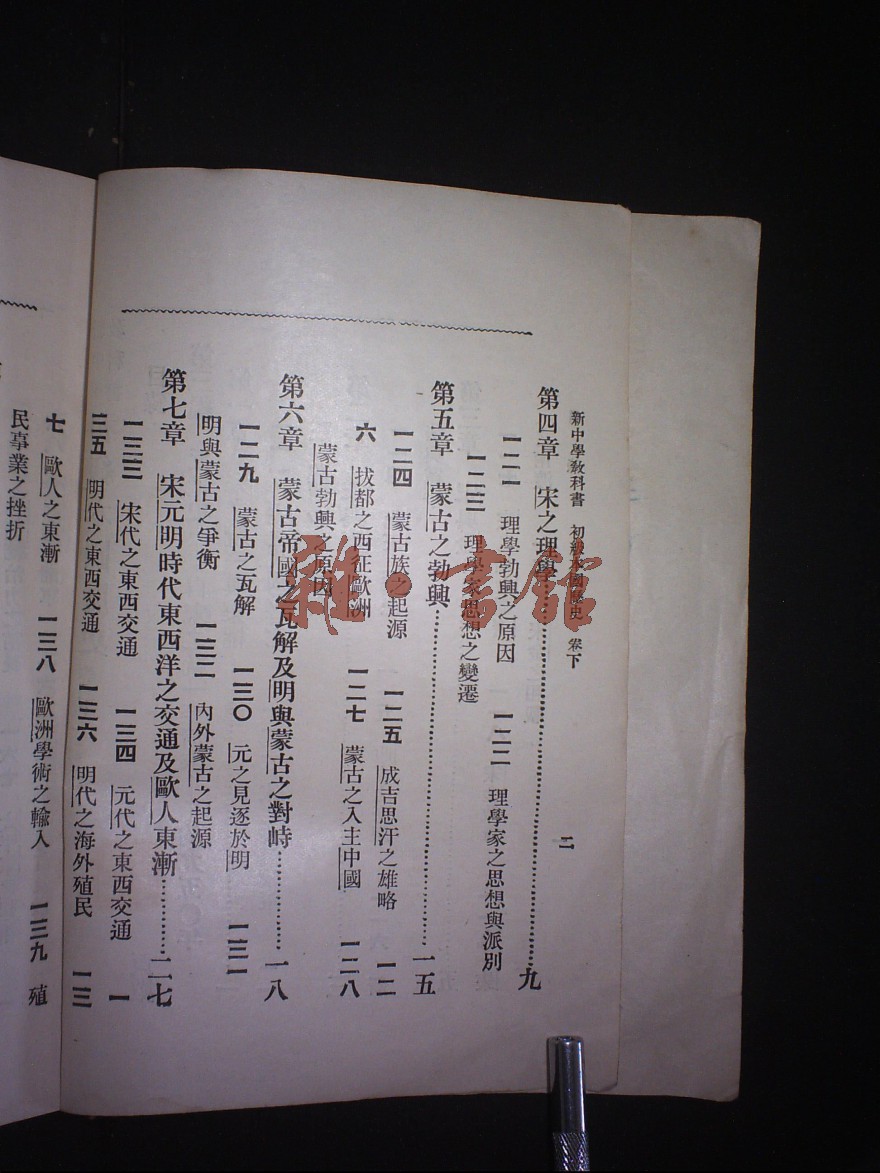 新中學教科書 初級本國歷史 卷下 二
第四章 宋之理學……九
一二一 理學勃興之原因 一二二 理學家之思想與派別
一二三 理學家思想之變遷
第五章 蒙古之勃興……一五
一二四 蒙古族之起源 一二五 成吉思汗之雄略 一二
六 拔都之西征歐洲 一二七 蒙古之入主中國 一二八
蒙古勃興之原因
第六章 蒙古帝國之瓦解及明與蒙古之對峙……一八
一二九 蒙古之瓦解 一三〇 元之見逐於明 一三一
明與蒙古之爭衡 一三二 內外蒙古之起源
第七章 宋元明時代東西洋之交通及歐人東漸……二七
一三三 宋代之東西交通 一三四 元代之東西交通 一
三五 明代之東西交通 一三六 明代之海外殖民 一三
七 歐人之東漸 一三八 歐洲學術之輸入 一三九 殖
民事業之挫折
雜·書館